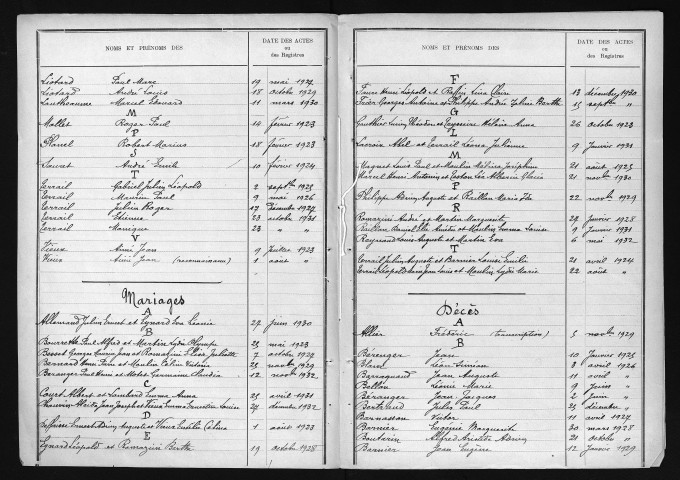 NOMS ET PRÉNOMS DES
DATE DES ACTES
ou
des Registres
Liotard Paul Marc 19 mai 1927
Liotard André Louis 18 octobre 1929
Lautheaume Marcel Edouard 11 mars 1930
M
Mallet Roger Paul 14 février 1923
P
Planel Robert Marius 18 janvier 1923
S
Sauvet André Emile 10 février 1924
T
Terrail Gabriel Julien Léopold 2 septbre 1925
Terrail Maurice Paul 9 mai 1926
Terrail Julien Roger 17 Décembre 1927
Terrail Etienne 23 octobre 1931
Terrail Monique 23 " "
V
Vieux Aimé Jean 9 Juillet 1923
Vieux Aimé Jean (reconnaissance) 1 août "
Mariages
A
Allemand Julien Ernest et Eynard Eva Léonie 27 juin 1930
B
Bourrette Paul Alfred et Martin Lydie Olympe 25 mai 1923
Bessot Georges Louis Jean et Romazini Elise Juliette 7 octobre 1929
Bernard Pierre et Maulin Célina Victoria 25 novbre 1929
Béranger Paul Henri et Motet Germaine Claudia 12 novbre 1932
C
Court Albert et Lombard Emma Anna 25 avril 1931
Jean Joseph et Vieux Emma Ernestine Louise 27 décembre 1932
D
Ernest Aimé Auguste et Vieux Emilie Célina 1 août 1923
E
Eynard Léopold et Romazini Berthe 19 octobre 1928
NOMS ET PRÉNOMS DES
DATE DES ACTES
ou
des Registres
F
Faure Henri Léopold et Raffin Lina Claire 13 décembre 1930
Georges Antoine et Philippe Andrée Juliette Berthe 15 septbre "
G
Gauthier et Hélène Anna 26 octobre 1923
L
Lacroix Abel et Terrail Léona Julienne 9 janvier 1931
M
Magnet Louis Paul et Maulin Joséphine 21 août 1925
Marcel Henri Antonin et 21 novbre 1930
P
Philippe Auguste et Raillon Marie 22 novbre 1929
R
Romazini André et Martin Marguerite 27 janvier 1928
et Maulin Emma Louise 9 janvier 1931
Reynaud Louis Auguste et Maulin Eva 6 mai 1932
T
Terrail Julien Auguste et Barnier Louise Emilie 21 avril 1924
Terrail Léopold Louis et Maulin Lydie Marie 22 août "
Décès
A
Allier Frédéric (transcription) 5 novbre 1929
B
Béranger Jean 10 Janvier 1925
Blanc Léon Simon 3 avril 1926
Barraquand Jean Auguste 11 avril "
Bellin Léonie Marie 9 juin "
Béranger Jean Jacques 2 juin "
Bertrand Jules Paul 25 décembre "
Bonnasson Victor 11 avril 1927
Barnier Eugénie Marguerite 30 mars 1928
Bouterin Alfred Aristide Edwin 21 octobre "
Barnier Jean Eugène 12 Janvier 1929